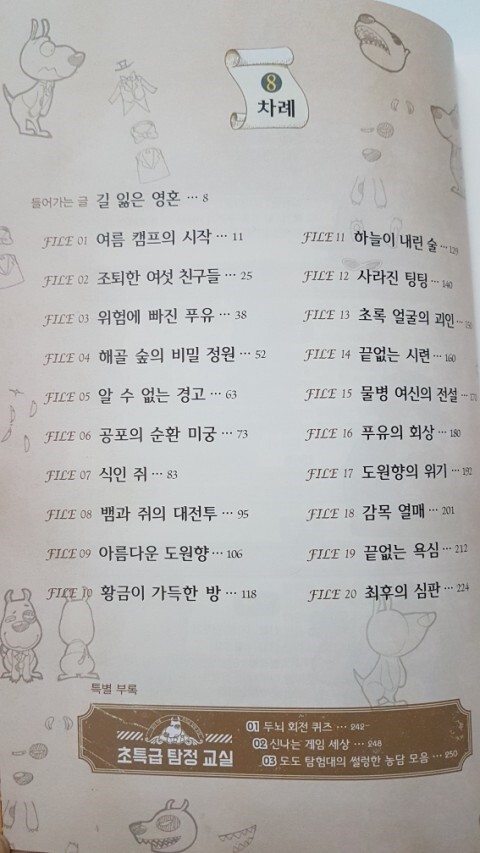 8
차례
들어가는 글 길 잃은 영혼 … 8
FILE 01 여름 캠프의 시작 … 11
FILE 02 조퇴한 여섯 친구들 … 25
FILE 03 위험에 빠진 푸유 … 38
FILE 04 해골 숲의 비밀 정원 … 52
FILE 05 알 수 없는 경고 … 63
FILE 06 공포의 순환 미궁 … 73
FILE 07 식인 쥐 … 83
FILE 08 뱀과 쥐의 대전투 … 95
FILE 09 아름다운 도원향 … 106
FILE 10 황금이 가득한 방 … 118
FILE 11 하늘이 내린 술 … 129
FILE 12 사라진 팅팅 … 140
FILE 13 초록 얼굴의 괴인 …
FILE 14 끝없는 시련 … 160
FILE 15 물병 여신의 전설 …
FILE 16 푸유의 회상 … 180
FILE 17 도원향의 위기 … 192
FILE 18 감목 열매 … 201
FILE 19 끝없는 욕심 … 212
FILE 20 최후의 심판 … 224
특별 부록
초특급 탐정 교실
01 두뇌 회전 퀴즈 … 242
02 신나는 게임 세상 … 248
03 도도 탐험대의 썰렁한 농담 모음 … 250